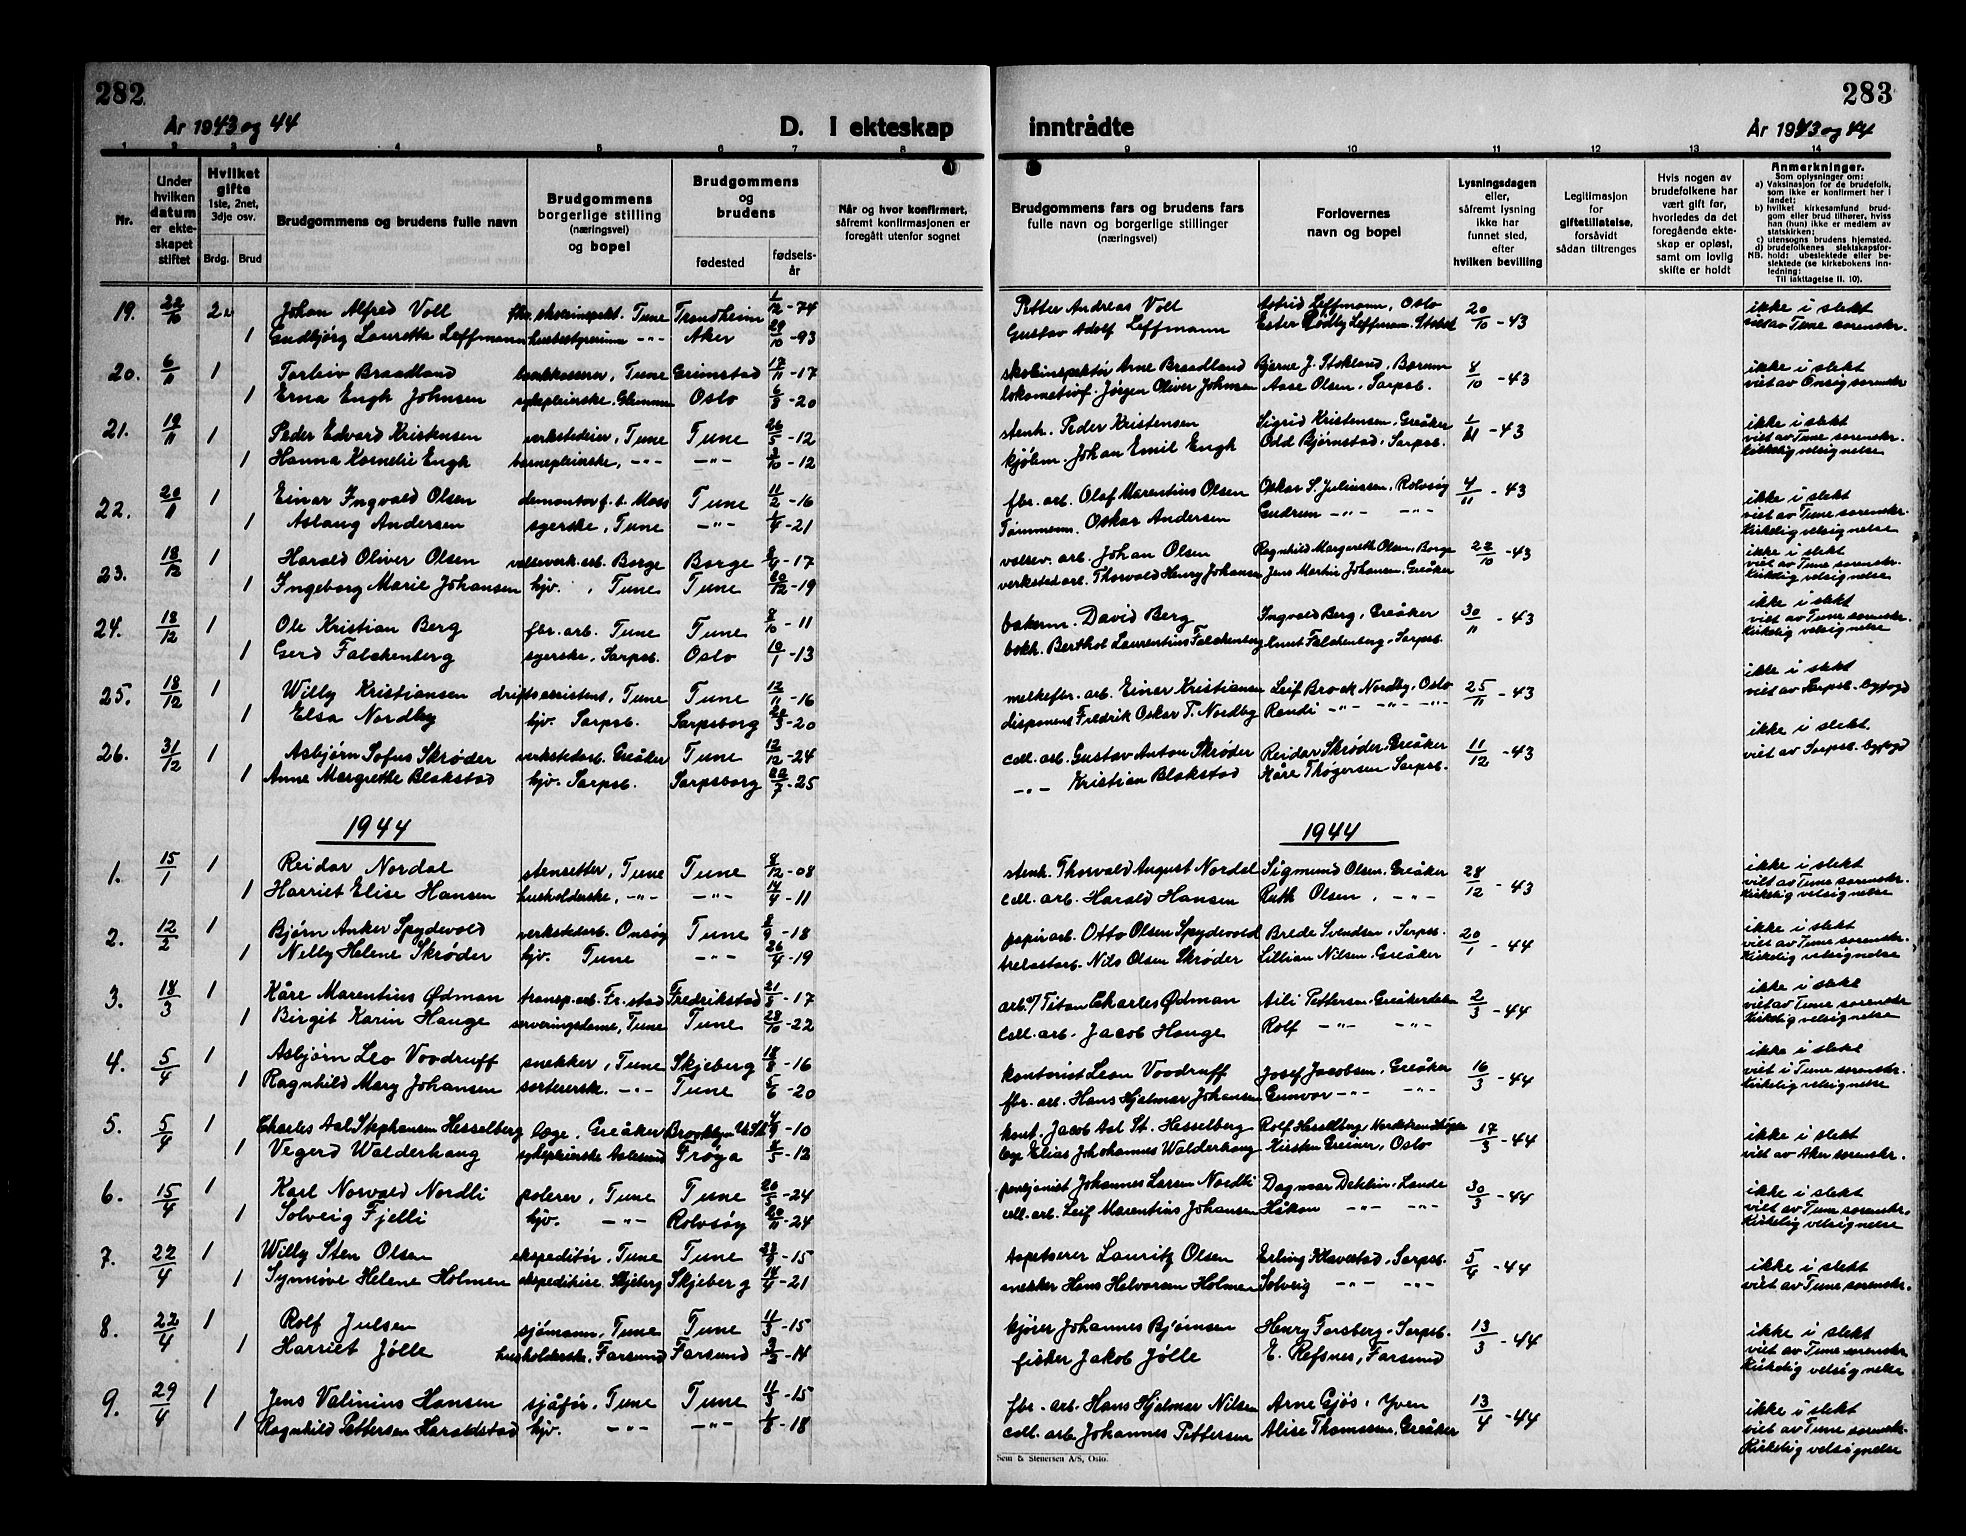 282
År 1943 og 44
D. I ekteskap
1 2 3 4 5 6 7 8
Nr.
Under hvilken datum er ekteskapet stiftet
Hvilket gifte 1ste, 2net, 3dje osv.
Brdg. Brud
Brudgommens og brudens fulle navn
Brudgommens borgerlige stilling (næringsvei) og bopel
Brudgommens og brudens
fødested
fødselsår
Når og hvor konfirmert, såfremt konfirmasjonen er foregått utenfor sognet
19. 22/10 2n Johan Alfred Voll fhv. skoleinspekt. Tune Trondheim 1/12 -74
1 Gudbjörg Laurette Leffmann husbestyrerinne -"- Aker 29/10 -93
20. 6/11 1 Torleiv Braadland bankkasserer, Tune Grimstad 17/11 -17
1 Erna Engh Johnsen sykepleierske. Glemmen Oslo 6/3 -20
21. 19/11 1 Peder Edvard Kristensen verkstedeier, Tune Tune 26/5 -12
1 Hanna Kornelie Engh barnepleierske, -"- -"- 3/10 -12
22. 20/11 1 Einar Ingvald Olsen demontør f. t. Moss Tune 11/2 -16
1 Aslaug Andersen syerske, Tune -"- 1/4 -21
23. 18/12 1 Harald Oliver Olsen valseverk. arb. Borge Borge 8/4 -17
1 Ingeborg Marie Johansen hjv. , Tune Tune 20/12 -19
24. 18/12 1 Ole Kristian Berg fbr. arb. Tune Tune 8/10 -11
1 Gerd Falchenberg syerske, Sarpsb. Oslo 10/1 -13
25. 18/12 1 Willy Kristiansen driftsassistent, Tune Tune 12/11 -16
1 Elsa Nordby hjv. Sarpsb. Sarpsborg 20/3 -20
26. 31/12 1 Asbjørn Sofus Skrøder verkstedarb. Greåker Tune 12/12 -24
1 Anne Margrethe Blakstad hjv. Sarpsb. Sarpsborg 20/7 -25
1944
1. 15/1 1 Reidar Nordal stensetter, Tune Tune 8/12 -08
1 Harriet Elise Hansen husholderske, -"- -"- 14/4 -11
2. 12/2 1 Bjørn Anker Spydevold verkstedarb. Onsøy Tune 8/9 -18
1 Nelly Helene Skrøder hjv. Tune -"- 26/4 -19
3. 18/3 1 Kåre Marentius Ødman transp. arb. Fr.stad Fredrikstad 21/8 -17
1 Birgit Karin Hauge serveringsdame, Tune Tune 28/10 -22
4. 5/4 1 Asbjørn Leo Voodruff snekker, Tune Skjeberg 18/8 -16
1 Ragnhild Mary Johansen sortersk. -"- Tune 5/6 -20
5. 5/4 1 Charles Aal Stephansen Hesselberg læge, Greåker Brooklyn U.S.A. 4/9 -10
1 Vegerd Walderhaug sykepleierske Aalesund Frøya 8/5 -12
6. 15/4 1 Karl Norvald Nordli polerer, Tune Tune 20/5 -24
1 Solveig Fjelli hjv. -"- Rolvsøy 20/11 -24
7. 22/4 1 Willy Sten Olsen ekspeditør, Tune Tune -15
1 Synnöve Helene Holmen ekspeditrise. Skjeberg Skjeberg 14/4 -21
8. 22/4 1 Rolf Julsen sjömann, Tune Tune 11/3 -15
1 Harriet Jölle husholderske, Farsund Farsund 9/2 -14
9. 29/4 1 Jens Valinius Hansen sjåfør, Tune Tune 11/3 -15
1 Ragnhild Pettersen Haraldstad hjv. -"- -"- 1/8 -18
283
inntrådte
År 1943 og 44
9 10 11 12 13 14
Brudgommens fars og brudens fars fulle navn og borgerlige stillinger (næringsvei)
Forlovernes navn og bopel
Lysningsdagen eller, såfremt lysning ikke har funnet sted, efter hvilken bevilling
Legitimasjon for giftetillatelse, forsåvidt sådan tiltrenges
Hvis nogen av brudefolkene har vært gift før, hvorledes da det foregående ekteskap er opløst, samt om lovlig skifte er holdt
Anmerkninger.
Som oplysninger om:
a) Vaksinasjon for de brudefolk, som ikke er konfirmert her i landet;
b) hvilket kirkesamfund brudgom eller brud tilhører, hviss han (hun) ikke er medlem av statskirken;
c) utensogns brudens hjemsted.
d) brudefolkenes slektskapsforhold: ubeslektede eller beslektede (se kirkebokens innledning:
NB. Til iakttagelse II. 10).
Petter Andreas Voll Astrid Leffmann, Oslo 20/10 -43 ikke i slekt
Gustav Adolf Leffmann Ester Rödby Leffmann. viet av Tune sorenskr.
skoleinspektör Arne Braadland Bjarne J. Stokland, Bærum 8/10 -43 ikke i slekt
lokomotivf. Jörgen Oliver Johnsen Aase Olsen, Sarpsb. viet av Onsöy sorenskr
stenh. Peder Kristensen Sigrid Kristensen, Greåker 1/11 -43 ikke i slekt
viet av Tune sorenskr.
kjölem. Johan Emil Engh Odd Bjørnstad, Sarpsb. Kirkelig velsignelse
fbr. arb. Olaf Marentius Olsen Oskar S. Juliussen, Rolvsöy 4/11 -43 ikke i slekt
viet av Tune sorenskr.
Tömmerm. Oskar Andersen Gudrun -"- -"- Kirkelig velsignelse
valsev. arb. Johan Olsen Ragnhild Margareth Olsen, Borge 22/10 -43 ikke i slekt
viet av Tune sorenskr.
verkstedarb. Thorvald Henry Johansen Jens Martin Johansen. Greåker Kirkelig velsignelse
bakerm. David Berg Ingvald Berg, Greåker 30/11 -43 ikke i slekt
viet av Tune sorenskr.
bokh. Berthol Laurentius Falchenberg Knut Falchenberg, Sarpsb. Kirkelig velsignelse
melkefbr. arb. Einar Kristiansen Leif Brock Nordby, Oslo 25/11 -43 ikke i slekt
disponent Fredrik Oskar T. Nordby Randi -"- -"- -"- viet av Sarpsb. byfogd
cell. arb. Gustav Anton Skröder Reidar Skrøder. Greåker 11/12 -43 ikke i slekt.
-"- Kristian Blakstad Kåre Thøgersen Sarpsb. viet av Sarpsb. byfogd
1944
stenh. Thorvald August Nordal Sigmund Olsen. Greåker 28/12 -43 ikke i slekt
viet av Tune sorenskr.
cell. arb. Harald Hansen Ruth Olsen, -"- Kirkelig velsignelse
papirarb. Otto Olsen Spydevold Brede Svendsen, Sarpsb. 20/1 -44 ikke i slekt
viet av Tune sorenskr.
trelastarb. Nils Olsen Skrøder Lillian Nilsen. Greåker Kirkelig velsignelse
arb. v/ Titan Charles Ødman Aili Pettersen. Greåkerdalen 2/3 -44 ikke i slekt
viet av Tune sorenskr
Cell. arb. Jacob Hauge Rolf -"- -"- Kirkelig velsignelse
kontorist Leon Voodruff Josef Jacobsen, Greåker 16/3 -44 ikke i slekt
viet i Tune sorenskr.
fbr. arb. Hans Hjalmar Johansen Gunvor -"- -"- Kirkelig velsignelse
kont. Jacob Aal St. Hesselberg Rolf Hesselberg 17/3 -44 ikke i slekt
læge Elias Johohannes Walderhaug Kirsten Greiner, Oslo viet av Aker sorenskr.
pensjonist Johannes Larsen Nordli Dagmar Dehlin, Lande 30/3 -44 ikke i slekt
viet av Tune sorenskr.
cell. arb. Leif Marentius Johansen Håkon -"- -"- Kirkelig velsignelse
tapetserer Lauritz Olsen Erling Klavestad, Sarpsb. 5/4 -44 ikke i slekt
snekker Hans Halvorsen Holmen Solveig -"- -"- viet av Tune sorenskr.
kjörer Johannes Bjömsen Henry Forsberg, Sarpsb. 13/3 -44 ikke i slekt
viet av Tune sorenskr
fisker Jakob Jölle E. Refsnes, Farsund Kirkelig velsignelse
fbr. arb. Hans Hjalmar Nilsen Arne Gjøs, Yven 13/4 -44 ikke i slekt
viet av Tune sorenskr.
cell. arb. Johannes Pettersen Alise Thomssen, Greåker Kirkelig velsignelse
Sem & Stenersen A/S, Oslo.